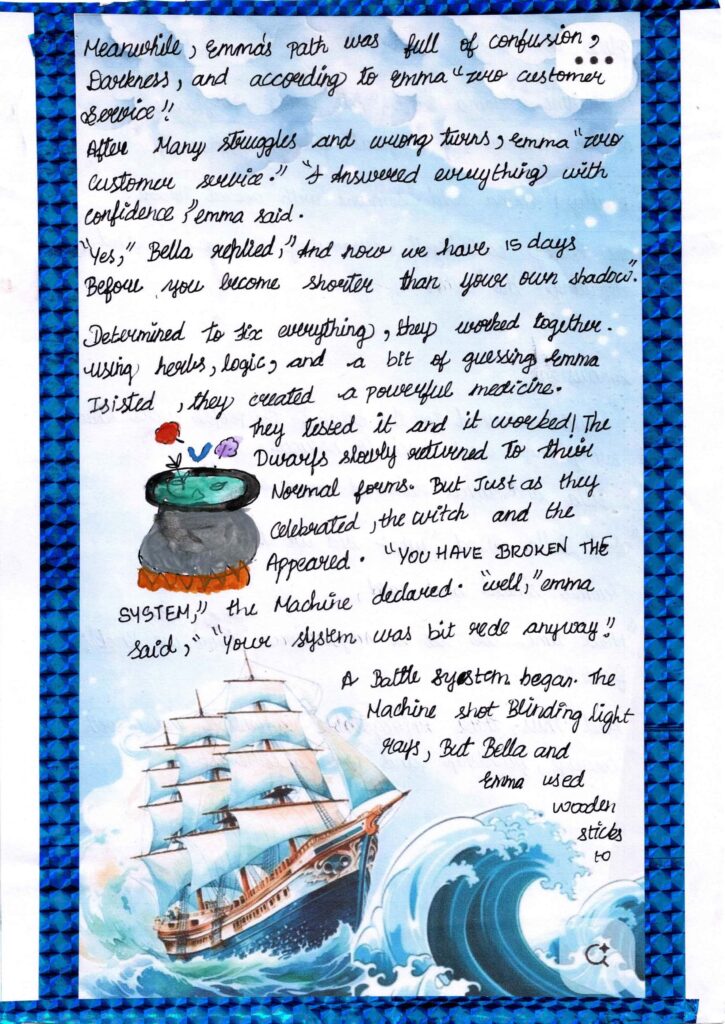 Meanwhile, Emma's path was full of confusion,
Darkness, and according to Emma "zero customer
Service"!
After Many struggles and wrong turns, Emma "zero
Customer service." "I Answered everything with
confidence," emma said.
"Yes," Bella replied," And now we have 15 days
Before you become shorter than your own shadow".
Determined to fix everything, they worked together.
using herbs, logic, and a bit of guessing Emma
Isisted, they created a powerful medicine.
They tested it and it worked! The
Dwarfs slowly returned to their
Normal forms. But Just as they
Celebrated, the witch and the
Appeared. "YOU HAVE BROKEN THE
SYSTEM," the Machine declared. "well," emma
said," "Your system was bit rede anyway".
A Battle system began. The
Machine shot Blinding light
rays, But Bella and
Emma used
wooden
sticks
to